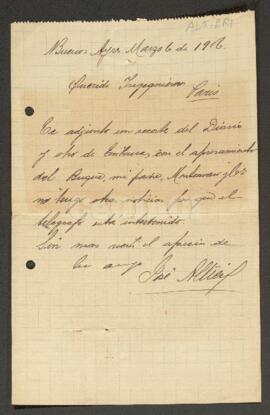 ALTIERI
Buenos Ayres Marzo 6 de 1906.
Querido
Paris
Te adjunto un recorte del Diario
y otro de Tribuna, con el apresamiento
del Buque, mi padre,
no tengo otra noticia porque el
telegrafo está intervenido.
Sin mas recibe el aprecio de
tu amigo
José Altieri